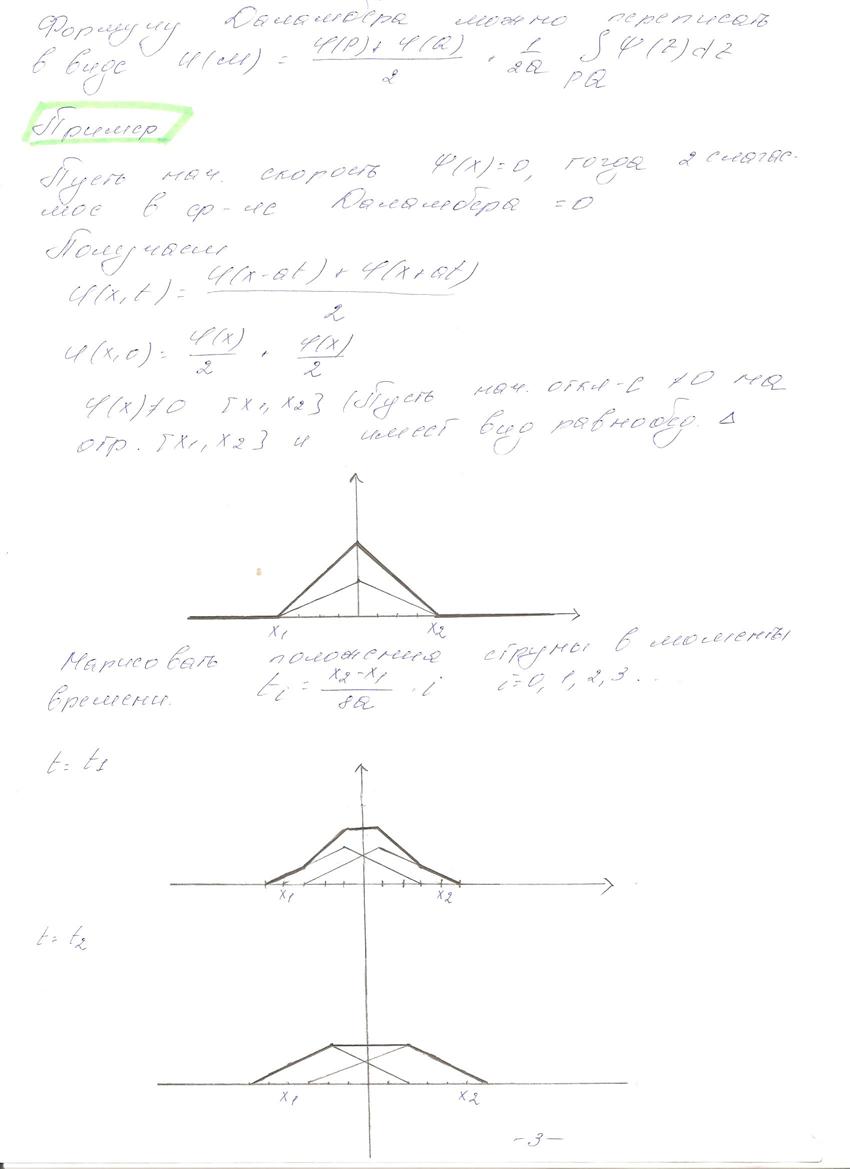 Формулу Даламбера можно переписать
в виде U(M) = (φ(P) + φ(Q))/2 + 1/2a ∫PQ Ψ(z)dz
Пример
Пусть нач. скорость Ψ(x)=0, тогда 2 слагае-
мое в ф-ле Даламбера =0
Получаем
U(x,t) = (φ(x-at) + φ(x+at))/2
U(x,0) = φ(x)/2 + φ(x)/2
φ(x)≠0 [x1, x2] (Пусть нач. откл-е ≠0 на
отр. [x1, x2] и имеет вид равнобед. Δ
x1 x2
Нарисовать положения струны в моменты
времени. ti = (x2-x1)/8a · i i=0, 1, 2, 3 ...
t = t1
x1 x2
t = t2
x1 x2
-3-